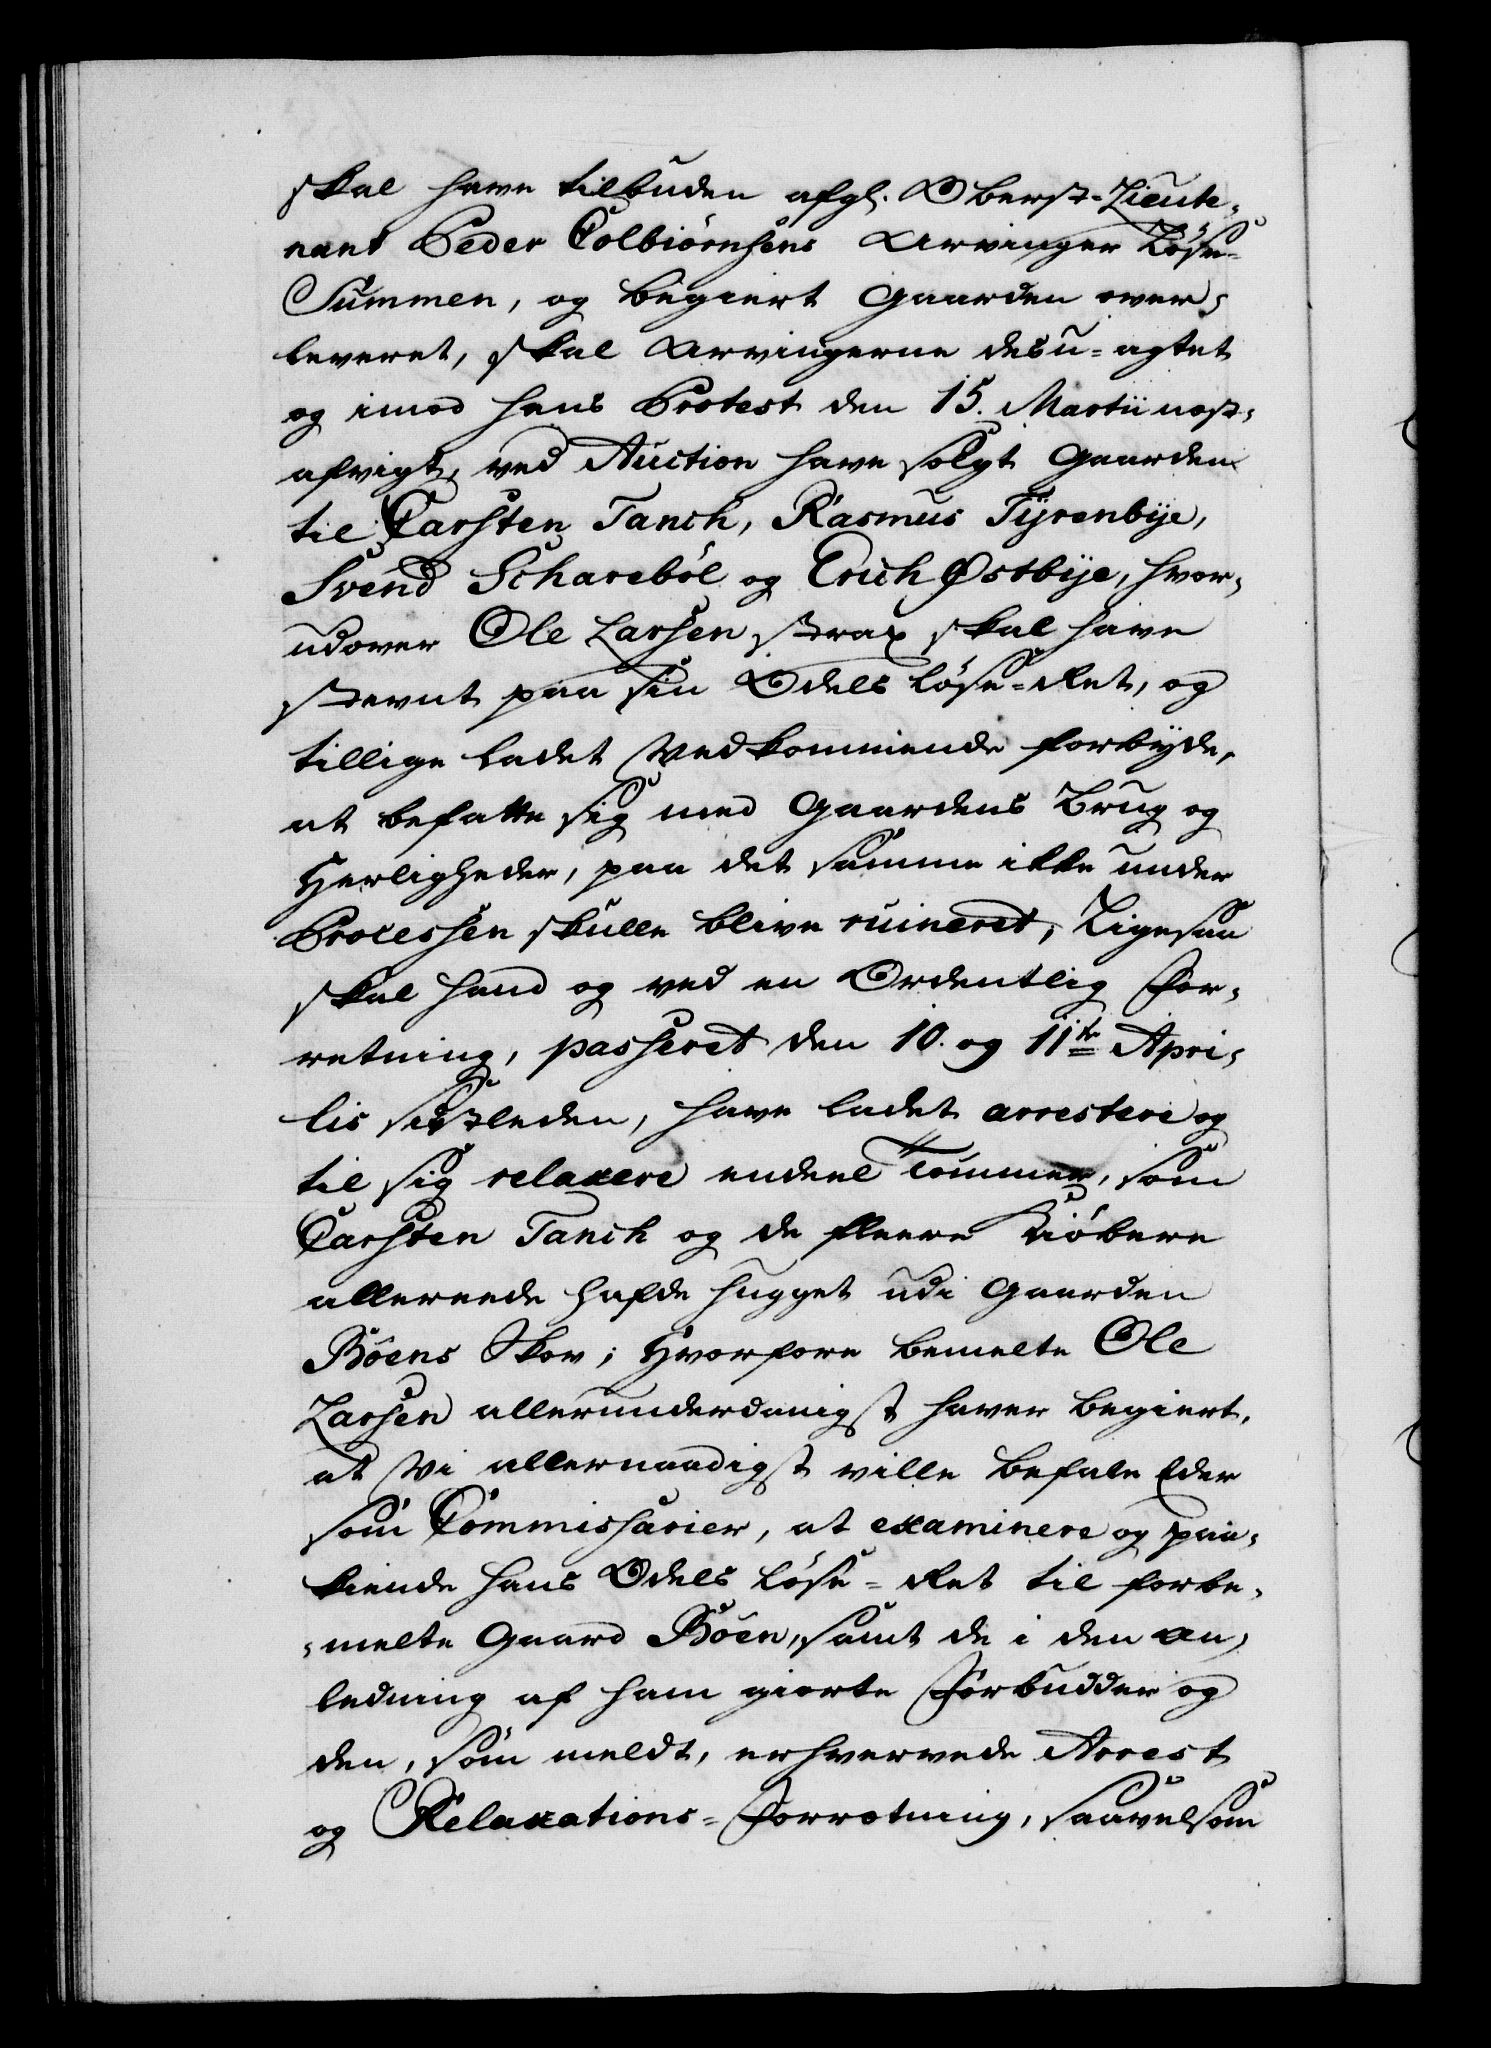 skal have tilbuden afgl. Oberst-Lieute-
nant Peder Colbiörnsens Arvinger Löse-
Summen, og begiert Gaarden over-
leveret, skal Arvingerne desu-agtet
og imod hans Protest den 15. Martii nest-
afvigt, ved Auction have solgt Gaarden
til Carsten Tanch, Rasmus Tÿrenbÿe,
Svend Schareböl og Erich Østbÿe, hvor-
udover Ole Larsen strax skal have
stevnt paa sin Odels löse-Ret, og
tillige ladet Vedkommende forbÿde,
at befatte sig med Gaardens Brug og
Herligheder, paa det samme ikke under
Processen skulle blive ruineret, Ligesaa
skal hand og ved en Ordentlig For-
retning, passeret den 10. og 11te Apri-
lis sidstleden, have ladet arrestere og
til sig relaxere endeel Tömmer, som
Carsten Tanch og de fleere Kiöbere
allereede hafde hugget udi Gaarden
Böens Skov; Hvorfore bemelte Ole
Larsen allerunderdanigst haver begiert,
at Vi allernaadigst ville befale Eder
som Commissarier, at examinere og paa-
kiende hans Odels löse-Ret til forbe-
-melte Gaard Böen, samt de i den an-
ledning af ham giorte Forbudder og
den, som meldt, erhvervede Arrest
og Relaxations-Forretning, saavelsom